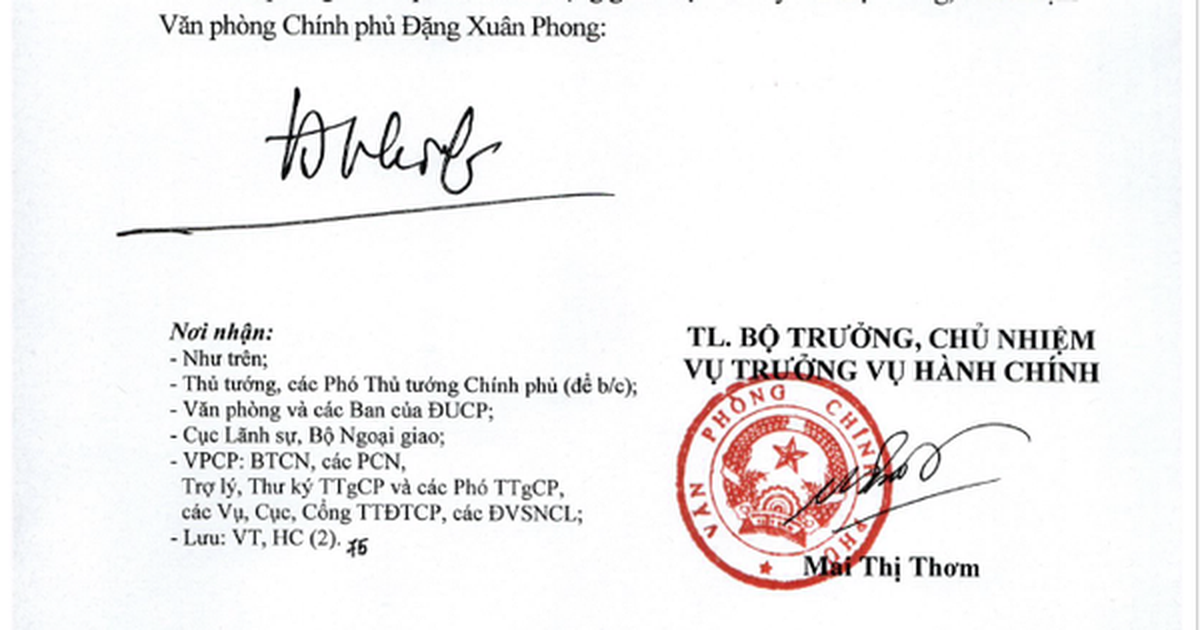 Văn phòng Chính phủ Đặng Xuân Phong:
Nơi nhận:
- Như trên;
- Thủ tướng, các Phó Thủ tướng Chính phủ (để b/c);
- Văn phòng và các Ban của ĐUCP;
- Cục Lãnh sự, Bộ Ngoại giao;
- VPCP: BTCN, các PCN,
Trợ lý, Thư ký TTgCP và các Phó TTgCP,
các Vụ, Cục, Cổng TTĐTCP, các ĐVSNCL;
- Lưu: VT, HC (2). 75
TL. BỘ TRƯỞNG, CHỦ NHIỆM
VỤ TRƯỞNG VỤ HÀNH CHÍNH
VĂN PHÒNG CHÍNH PHỦ
Mai Thị Thơm